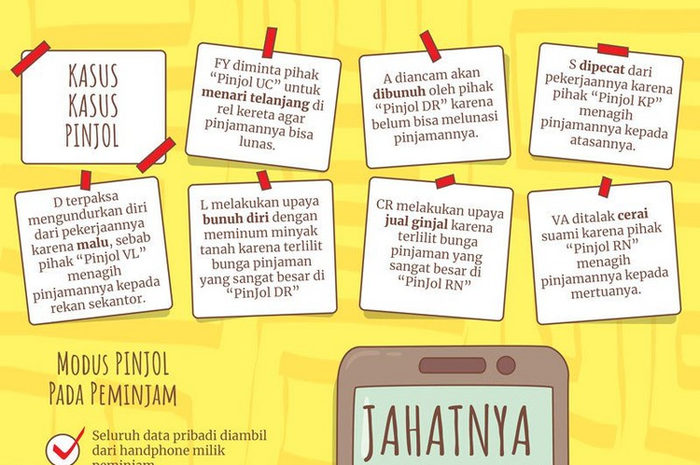 KASUS
KASUS
PINJOL
FY diminta pihak
"Pinjol UC" untuk
menari telanjang di
rel kereta agar
pinjamannya bisa
lunas.
A diancam akan
dibunuh oleh pihak
"Pinjol DR" karena
belum bisa melunasi
pinjamannya.
S dipecat dari
pekerjaannya karena
pihak "Pinjol KP"
menagih
pinjamannya kepada
atasannya.
D terpaksa
mengundurkan diri
dari pekerjaannya
karena malu, sebab
pihak "Pinjol VL"
menagih
pinjamannya kepada
rekan sekantor.
L melakukan upaya
bunuh diri dengan
meminum minyak
tanah karena terlilit
bunga pinjaman
yang sangat besar di
"PinJol DR"
CR melakukan upaya
jual ginjal karena
terlilit bunga
pinjaman yang
sangat besar di
"PinJol RN"
VA ditalak cerai
suami karena pihak
"Pinjol RN"
menagih
pinjamannya kepada
mertuanya.
MODUS PINJOL
PADA PEMINJAM
Seluruh data pribadi diambil
dari handphone milik
peminjam
JAHATNYA